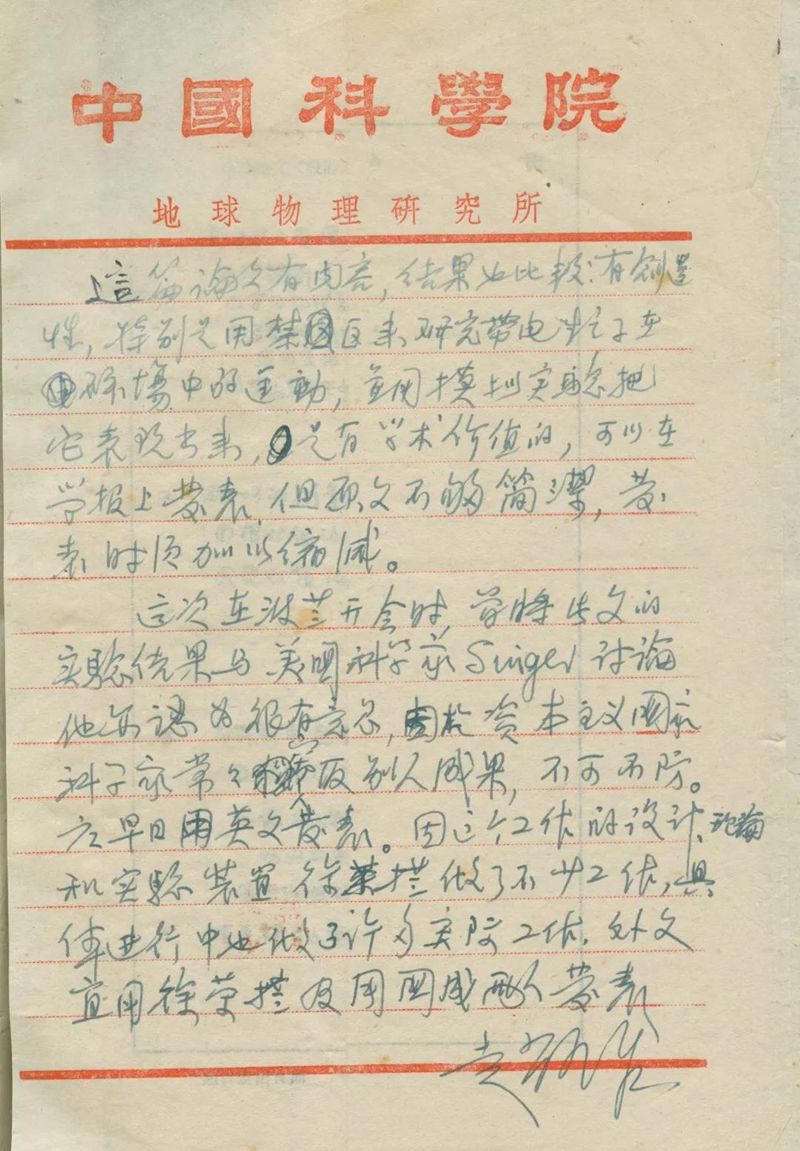 中國科學院
地球物理研究所
這篇論文有内容，结果也比較有創造
性，特别是用禁区来研究带电粒子在
磁場中的运動，並用模拟实验把
它表现出来，是有学术价值的，可以在
学报上发表，但原文不够简潔，发
表时须加以缩减。
这次在波兰开会时，曾将此文的
实验结果与美国科学家Singer讨論
他亦認为很有意思，由於资本主义國家
科学家常々剽窃别人成果，不可不防。
应早日用英文发表。因这个工作的设计、理論
和实驗装置徐荣栏做了不少工作，具
体进行中也做了许多实际工作，外文
宜用徐荣栏及周國成两人发表
赵九章